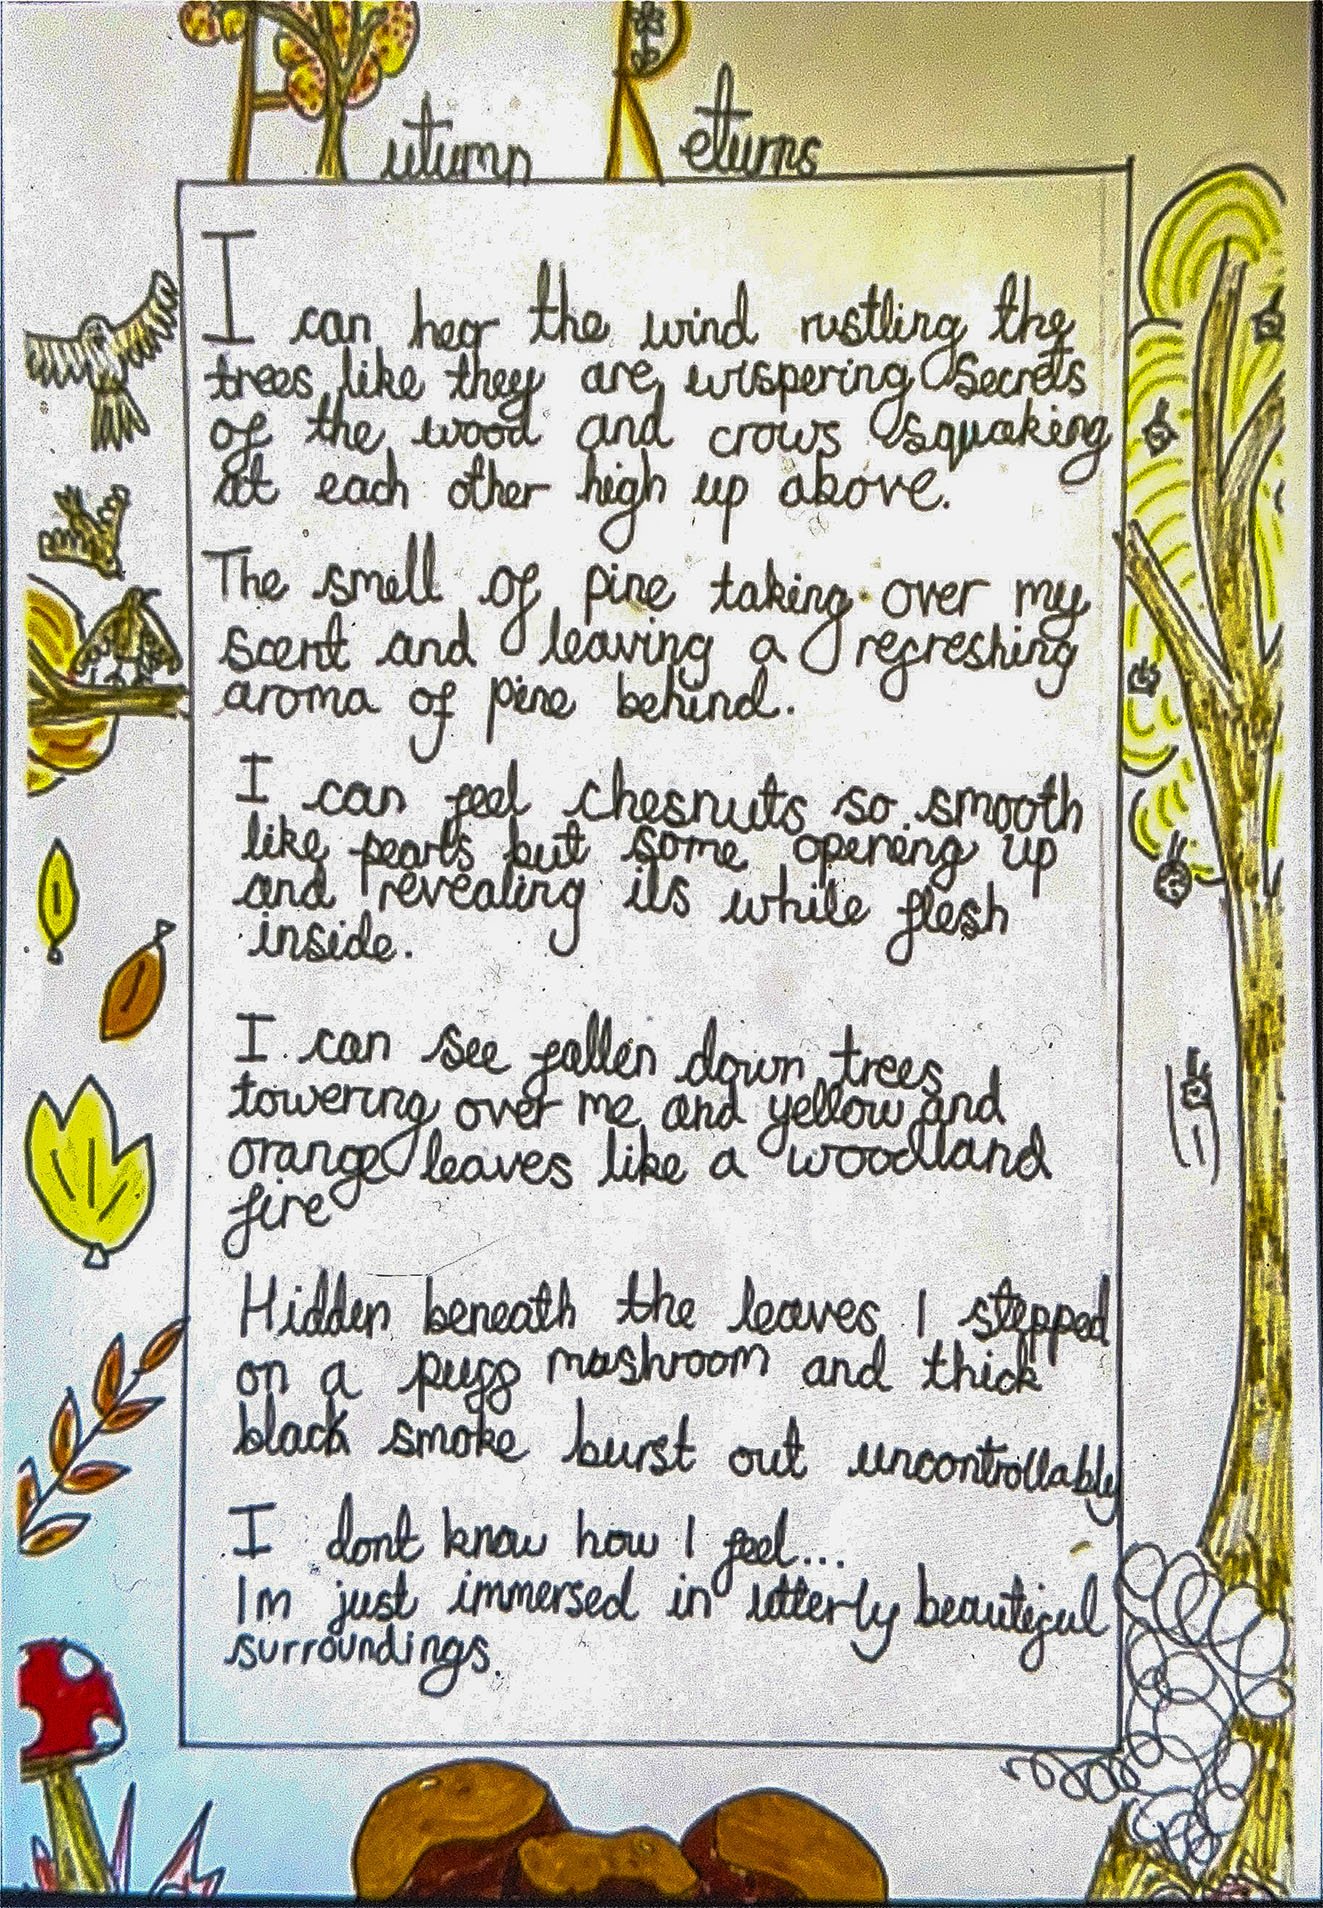 Autumn Returns
I can hear the wind rustling the
trees like they are wispering secrets
of the wood and crows squaking
at each other high up above.
The smell of pine taking over my
scent and leaving a refreshing
aroma of pine behind.
I can feel chesnuts so smooth
like pearls but some opening up
and revealing its white flesh
inside.
I can see fallen down trees
towering over me and yellow and
orange leaves like a woodland
fire
Hidden beneath the leaves I stepped
on a puff mushroom and thick
black smoke burst out uncontrollably
I dont know how I feel...
Im just immersed in utterly beautiful
surroundings.